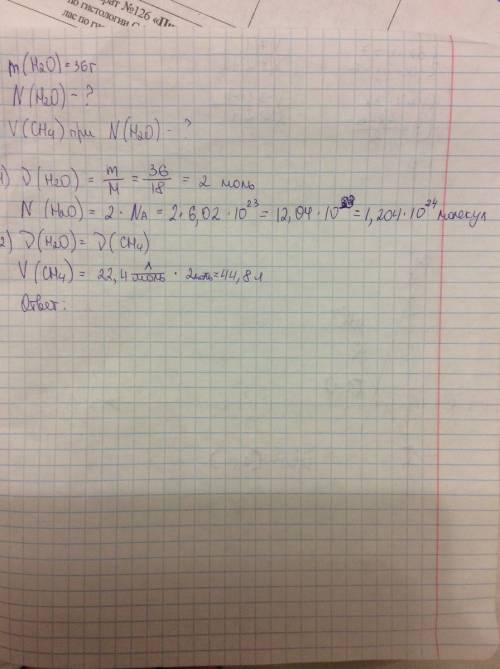 рат №126 «П
по гистологии С
лас по ги
m(H₂O) = 36 г
N(H₂O) - ?
V(CH₄) при N(H₂O) - ?
1) ν(H₂O) = m/M = 36/18 = 2 моль
N(H₂O) = 2 · NA = 2 · 6,02 · 10²³ = 12,04 · 10²³ = 1,204 · 10²⁴ молекул
2) ν(H₂O) = ν(CH₄)
V(CH₄) = 22,4 л/моль · 2моль = 44,8 л
Ответ: